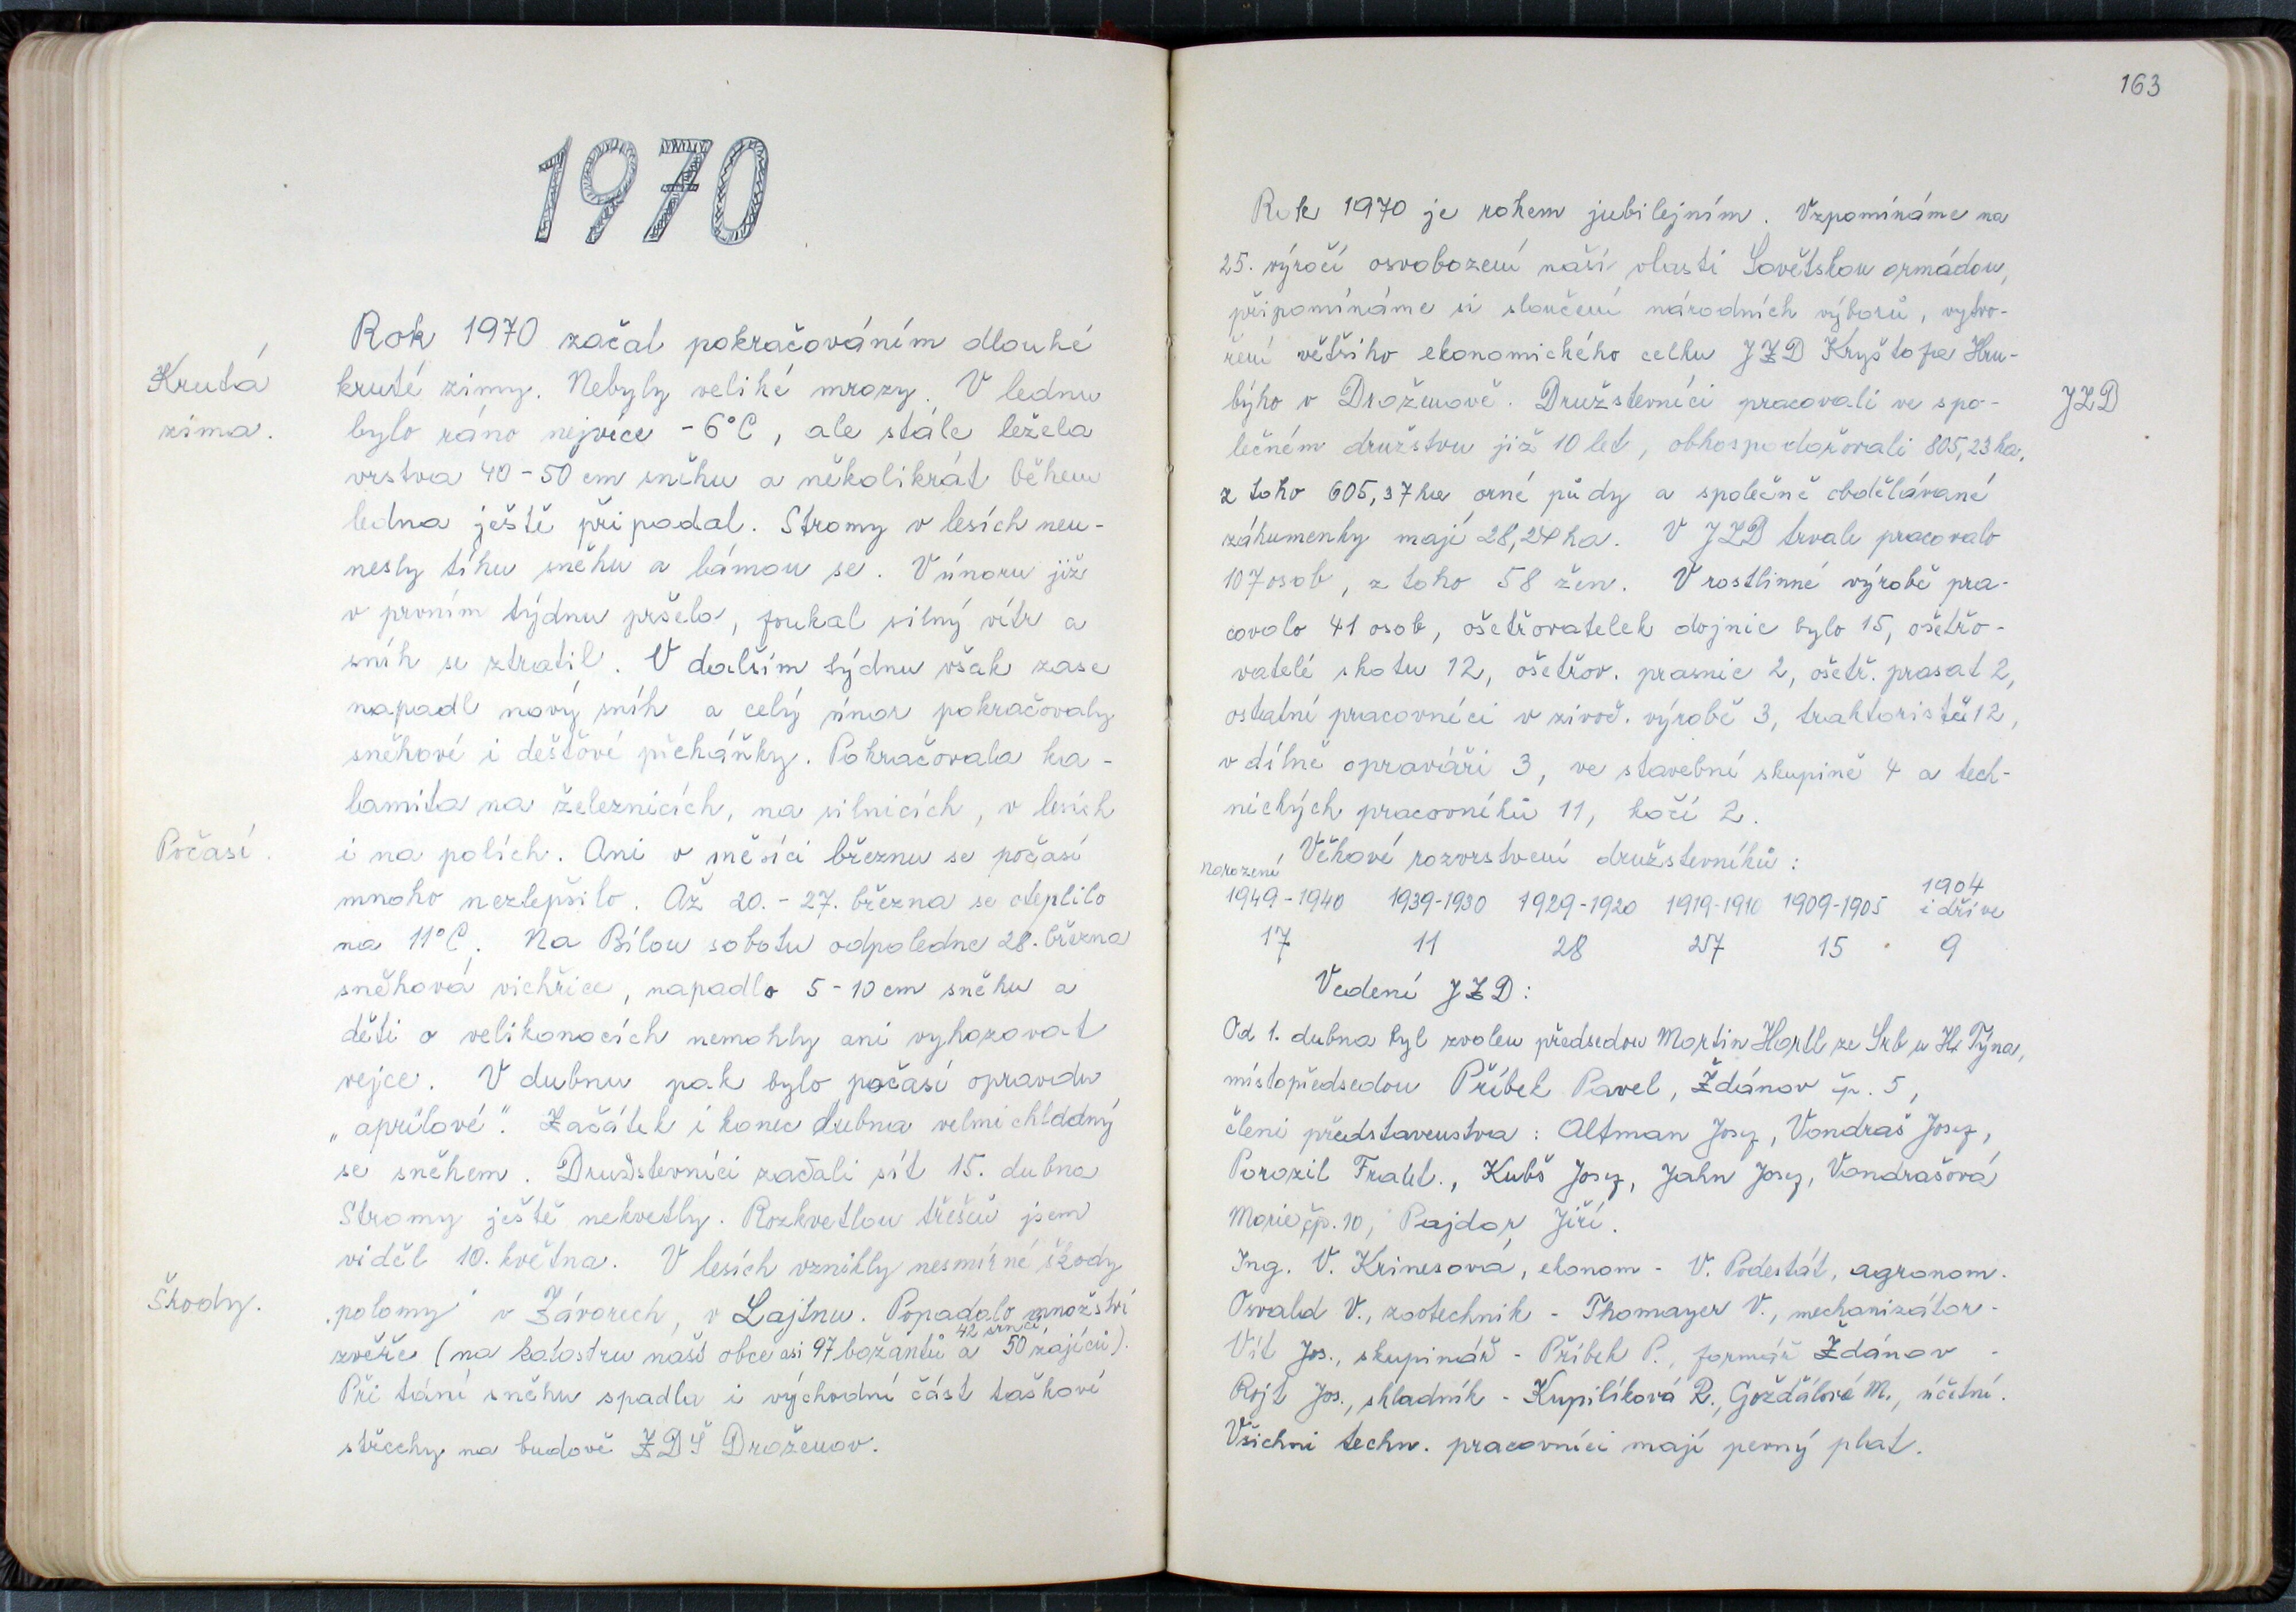 1970
Rok 1970 začal pokračováním dlouhé
Krutá
zima.
kruté zimy. Nebyly veliké mrozy. V lednu
bylo ráno nejvíce -6°C, ale stále ležela
vrstva 40-50 cm sněhu a několikrát během
ledna ještě připadal. Stromy v lesích neu-
nesly tíhu sněhu a lámou se. V únoru již
v prvním týdnu pršelo, foukal silný vítr a
sníh se ztratil. V dalším týdnu však zase
napadl nový sníh a celý únor pokračovaly
sněhové i dešťové płcháňky. Pokračovala ka-
lamita na železnicích, na silnicích, v lesích
Počasí.
i na polích. Ani v měsíci březnu se počasí
mnoho nezlepšilo. Až 20.-27. března se oteplilo
na 11°C. Na Bílou sobotu odpoledne 28. března
sněhová vichřice, napadlo 5-10 cm sněhu a
děti o velikonocích nemohly ani vyhazovat
vejce. V dubnu pak bylo počasí opravdu
„aprílové". Začátek i konec dubna velmi chladný
se sněhem. Družstevníci začali sít 15. dubna
Stromy ještě nekvetly. Rozkvetlou třešeň jsem
viděl 10. května. V lesích vznikly nesmírné škody
Škody.
„polomy" v Závorech, v Lajtnu. Popadalo množství
zvěře (na katastru naší obce asi 97 bažantů 42 srnčí a 50 zajíců).
Při tání sněhu spadla i východní část taškové
střechy na budově ZDŠ Draženov.
163
Rok 1970 je rokem jubilejním. Vzpomínáme na
25. výročí osvobození naší vlasti Sovětskou armádou,
připomínáme si sloučení národních výborů, vytvo-
ření většího ekonomického celku JZD Kryštofa Hru-
býho v Draženově. Družstevníci pracovali ve spo-
JZD
lečném družstvu již 10 let, obhospodařovali 805,23 ha,
z toho 605,37 ha orné půdy a společně obdělávané
záhumenky mají 28,24 ha. V JZD trvale pracovalo
107 osob, z toho 58 žen. V rostlinné výrobě pra-
covalo 41 osob, ošetřovatelek dojnic bylo 15, ošetřo-
vatelé skotu 12, ošetřov. prasnic 2, ošetř. prasat 2,
ostatní pracovníci v živoč. výrobě 3, traktoristů 12,
v dílně opraváři 3, ve stavební skupině 4 a tech-
nických pracovníků 11, kočí 2.
Věkové rozvrstvení družstevníků:
Narození
1949-1940 1939-1930 1929-1920 1919-1910 1909-1905 1904 i dříve
17 11 28 27 15 9
Vedení JZD:
Od 1. dubna byl zvolen předsedou Martin Hartl ze Srb u H. Týna,
místopředsedou Příbek Pavel, Ždánov čp. 5,
členi představenstva: Altman Josef, Vondraš Josef,
Porazil Frant., Kubš Josef, Jahn Josef, Vondrašová
Marie čp. 10, Pajdar Jiří.
Ing. V. Krinesová, ekonom - V. Podestát, agronom.
Osvald V., zootechnik - Thomayer V., mechanizátor -
Vít Jos., skupinář - Příbek P., farmář Ždánov -
Rojt Jos., skladník - Kupilíková R., Gožďálová M., účetní.
Všichni techn. pracovníci mají pevný plat.